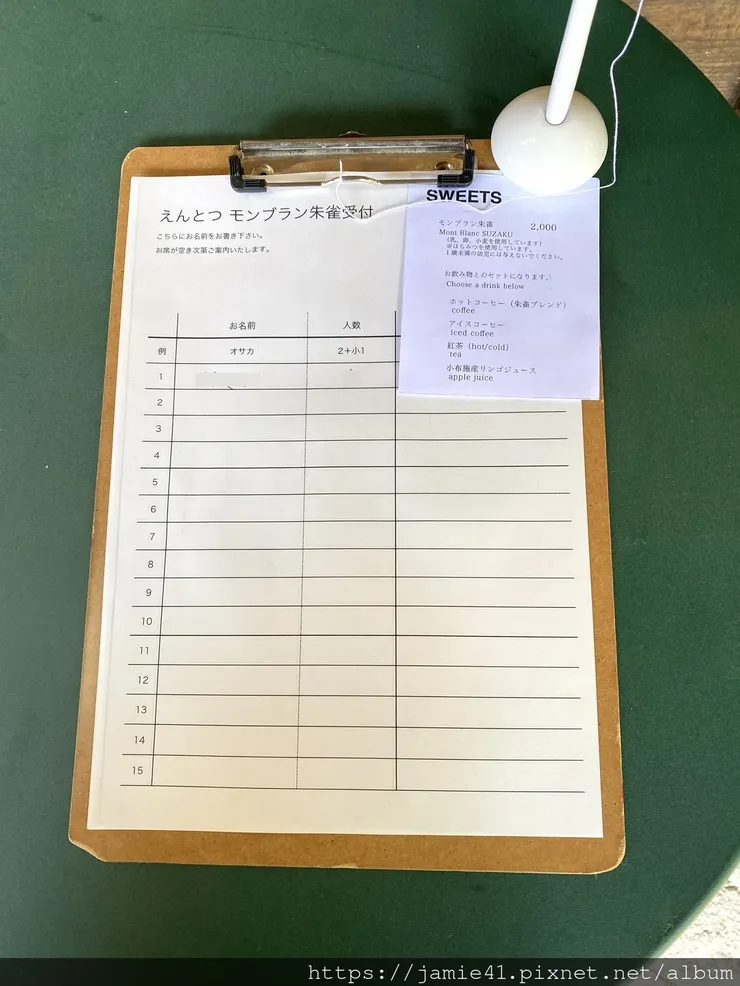 えんとつ モンブラン朱雀受付
こちらにお名前をお書き下さい。
お席が空き次第ご案内いたします。
お名前 人数
例 オサカ 2+小1
1
2
3
4
5
6
7
8
9
10
11
12
13
14
15
SWEETS
モンブラン朱雀 2,000
Mont Blanc SUZAKU
(乳、卵、小麦を使用しています)
※はちみつを使用しています。
1歳未満の幼児には与えないでください。
お飲み物とのセットになります。
Choose a drink below
ホットコーヒー（朱雀ブレンド）
coffee
アイスコーヒー
iced coffee
紅茶（hot/cold）
tea
小布施産リンゴジュース
apple juice
https://jamie41.pixnet.net/album